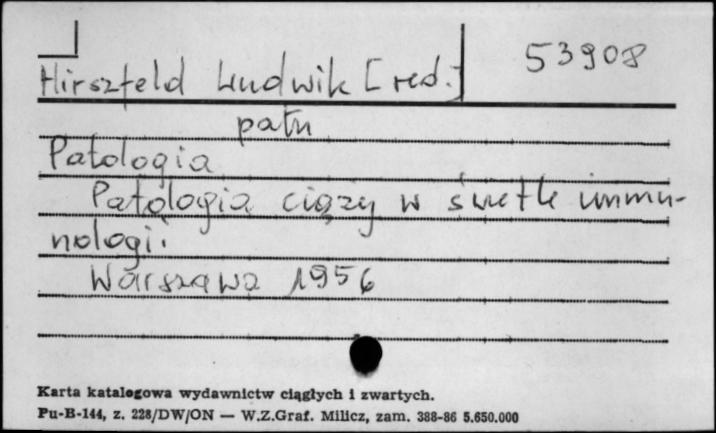 53908
Hirszfeld Ludwik [red.]
patrz
Patologia
Patologia ciąży w świetle immu-
nologii.
Warszawa 1956
Karta katalogowa wydawnictw ciągłych i zwartych.
Pu-B-144, z. 228/DW/ON — W.Z.Graf. Milicz, zam. 388-86 5.650.000